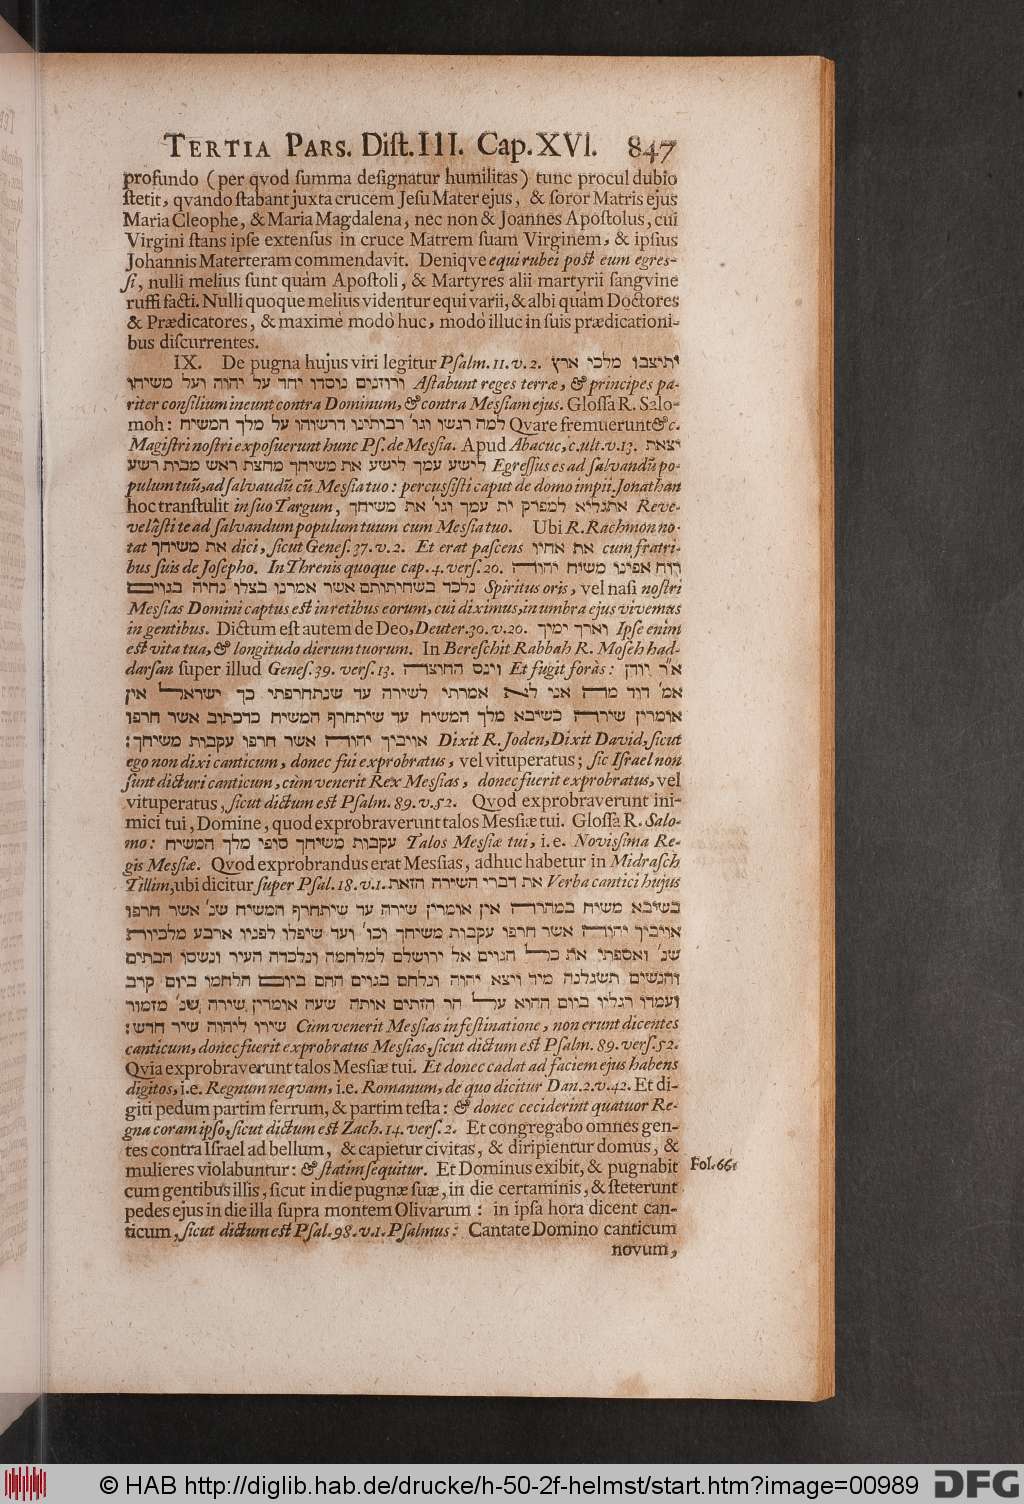 TERTIA PARS. Dist. III. Cap. XVI. 847
profundo (per qvod summa designatur humilitas) tunc procul dubio
stetit, qvando stabant juxta crucem Jesu Mater ejus, & soror Matris ejus
Maria Cleophe, & Maria Magdalena, nec non & Joannes Apostolus, cui
Virgini stans ipse extensus in cruce Matrem suam Virginem, & ipsius
Johannis Materteram commendavit. Deniqve equi rubei post eum egres-
si, nulli melius sunt quàm Apostoli, & Martyres alii martyrii sangvine
ruffi facti. Nulli quoque melius videntur equi varii, & albi quàm Doctores
& Prædicatores, & maximè modò huc, modò illuc in suis prædicationi-
bus discurrentes.
IX. De pugna hujus viri legitur Psalm. 11. v. 2. יתיצבו מלכי ארץ
ורוזנים נוסדו יחד על יהוה ועל משיחו Astabunt reges terræ, & principes pa-
riter consilium ineunt contra Dominum, & contra Messiam ejus. Glossa R. Salo-
moh: למה רגשו וגו' רבותינו דרשוהו על מלך המשיח Qvare fremuerunt &c.
Magistri nostri exposuerunt hunc Ps. de Messia. Apud Abacuc, c. ult. v. 13. יצאת
לישע עמך לישע את משיחך מחצת ראש מבית רשע Egressus es ad salvandũ po-
pulum tuũ, ad salvandũ cũ Messia tuo: percussisti caput de domo impii. Jonathan
hoc transtulit in suo Targum, אתגליא למפרק ית עמך וגו' את משיחך Reve-
velâsti te ad salvandum populum tuum cum Messia tuo. Ubi R. Rachmon no-
tat את משיחך dici, sicut Genes. 37. v. 2. Et erat pascens את אחיו cum fratri-
bus suis de Josepho. In Threnis quoque cap. 4. vers. 20. רוח אפינו משיח יהוה
נלכד בשחיתותם אשר אמרנו בצלו נחיה בגוים Spiritus oris, vel nasi nostri
Messias Domini captus est in retibus eorum, cui diximus, in umbra ejus vivemus
in gentibus. Dictum est autem de Deo, Deuter. 30. v. 20. וארך ימיך Ipse enim
est vita tua, & longitudo dierum tuorum. In Bereschit Rabbah R. Moseh had-
darsan super illud Genes. 39. vers. 13. וינס החוצה Et fugit foràs: א"ר יודן
אמ' דוד מה אני לא אמרתי לשירה עד שנתחרפתי כך ישראל אין
אומרין שירה כשיבא מלך המשיח עד שיתחרף המשיח כדכתוב אשר חרפו
אויביך יהוה אשר חרפו עקבות משיחך: Dixit R. Joden, Dixit David, sicut
ego non dixi canticum, donec fui exprobratus, vel vituperatus; sic Israel non
sunt dicturi canticum, cùm venerit Rex Messias, donec fuerit exprobratus, vel
vituperatus, sicut dictum est Psalm. 89. v. 52. Qvod exprobraverunt ini-
mici tui, Domine, quod exprobraverunt talos Messiæ tui. Glossa R. Salo-
mo: עקבות משיחך סופי מלך המשיח Talos Messiæ tui, i.e. Novissima Re-
gis Messiæ. Qvod exprobrandus erat Messias, adhuc habetur in Midrasch
Tillim, ubi dicitur super Psal. 18. v. 1. את דברי השירה הזאת Verba cantici hujus
בשיבא משיח במהרה אין אומרין שירה עד שיתחרף המשיח שנ' אשר חרפו
אויביך יהוה אשר חרפו עקבות משיחך וכו' ועד שיפלו לפניו ארבע מלכיות
שנ' ואספתי את כל הגוים אל ירושלם למלחמה ונלכדה העיר ונשסו הבתים
והנשים תשגלנה מיד ויצא יהוה ונלחם בגוים ההם ביום הלחמו ביום קרב
ועמדו רגליו ביום ההוא על הר הזתים אותה שעה אומרין שירה שנ' מזמור
שירו ליהוה שיר חדש: Cùm venerit Messias in festinatione, non erunt dicentes
canticum, donec fuerit exprobratus Messias, sicut dictum est Psalm. 89. vers. 52.
Qvia exprobraverunt talos Messiæ tui. Et donec cadat ad faciem ejus habens
digitos, i.e. Regnum neqvam, i.e. Romanum, de quo dicitur Dan. 2. v. 42. Et di-
giti pedum partim ferrum, & partim testa: & donec ceciderint quatuor Re-
gna coram ipso, sicut dictum est Zach. 14. vers. 2. Et congregabo omnes gen-
tes contra Israel ad bellum, & capietur civitas, & diripientur domus, &
mulieres violabuntur: & statim sequitur. Et Dominus exibit, & pugnabit
Fol. 66.
cum gentibus illis, sicut in die pugnæ suæ, in die certaminis, & steterunt
pedes ejus in die illa supra montem Olivarum: in ipsa hora dicent can-
ticum, sicut dictum est Psal. 98. v. 1. Psalmus: Cantate Domino canticum
novum,
© HAB http://diglib.hab.de/drucke/h-50-2f-helmst/start.htm?image=00989 DFG